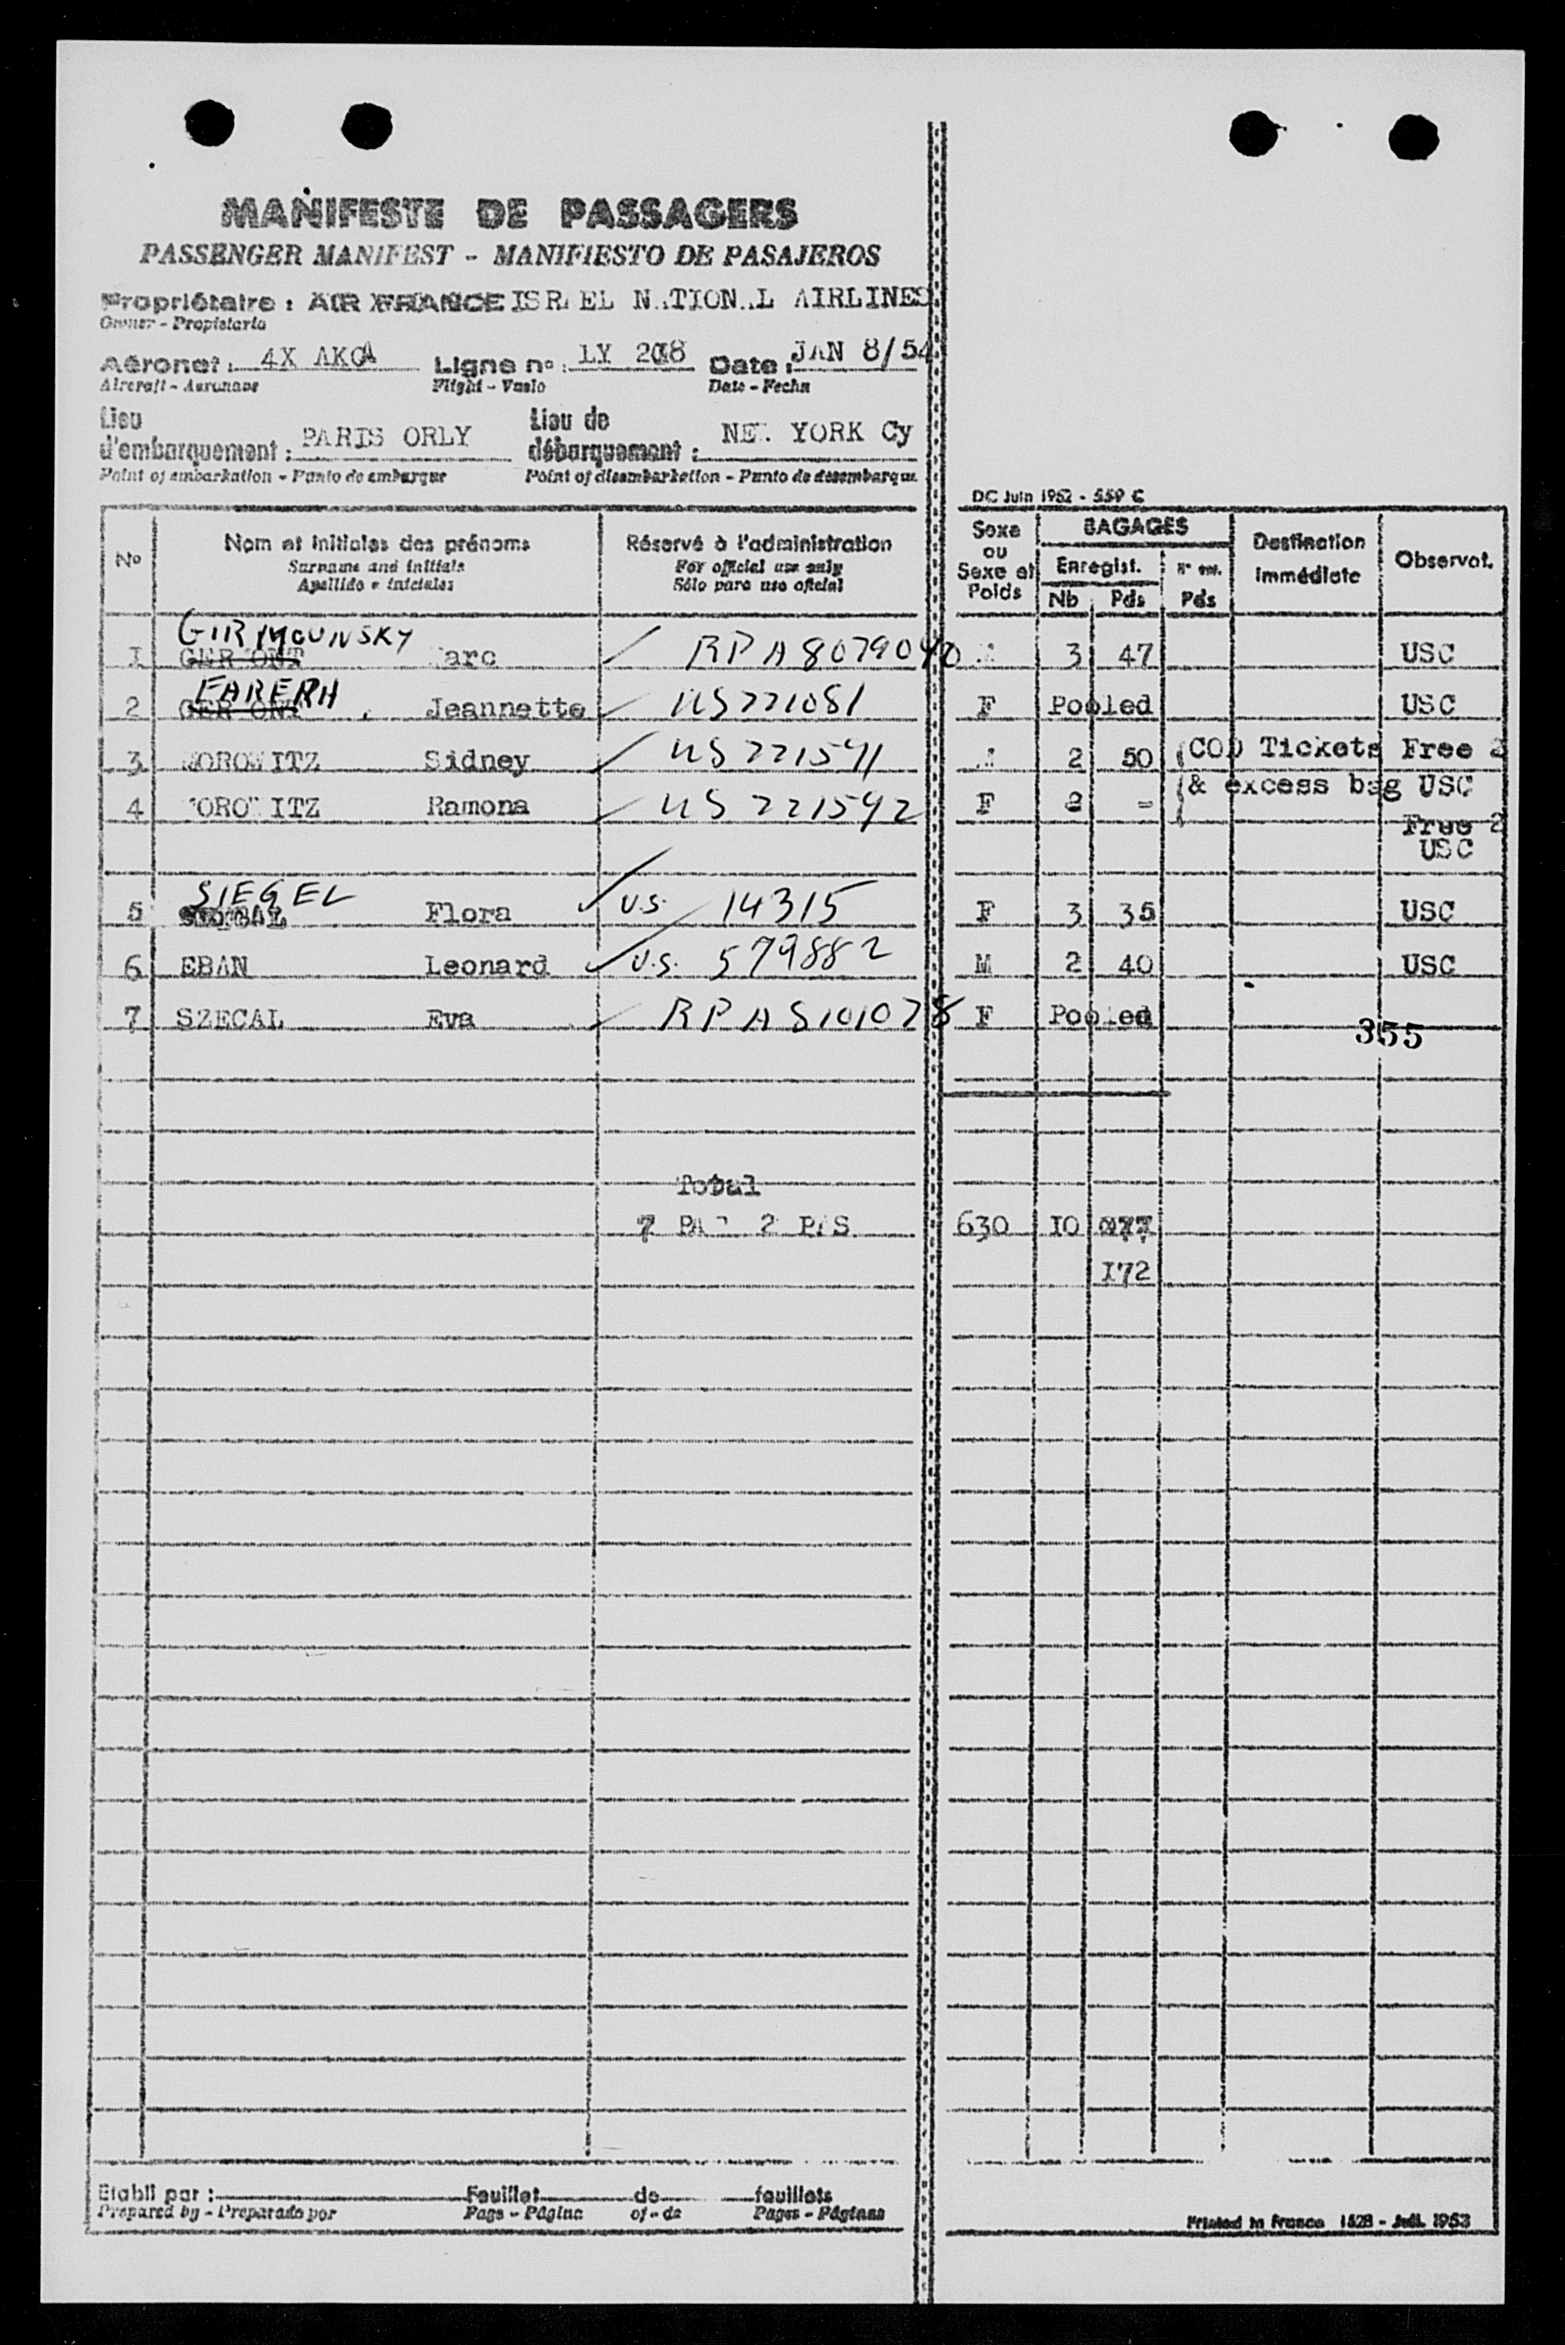 MANIFESTE DE PASSAGERS
PASSENGER MANIFEST - MANIFIESTO DE PASAJEROS
Propriétaire : AIR FRANCE ISR EL N TION L AIRLINES
Owner - Propietario
Aéronef : 4X AKOA Ligne no : LY 208 Date : JAN 8/54
Aircraft - Aeronave Flight - Vuelo Date - Fecha
Lieu d'embarquement : PARIS ORLY Lieu de débarquement : NE YORK Cy
Point of embarkation - Punto de embarque Point of disembarkation - Punto de desembarque
DC Juin 1952 - 559 C
No Nom et initiales des prénoms Réservé à l'administration Sexe ou Sexe et Poids BAGAGES Destination immédiate Observat.
Surname and initials For official use only Enregist.
Apellido e iniciales Sólo para uso oficial Nb Pds Pds
GIRMOUNSKY
1 GER ONT arc RPA8079040 3 47 USC
FARERH
2 GER ONT Jeannette US221081 F Pooled USC
3 OROWITZ Sidney US221591 2 50 (COD Tickets Free 2
& excess bag USC
4 ORO ITZ Ramona US221592 F 2 -
Free 2
USC
SIEGEL
5 Flora U.S. 14315 F 3 35 USC
6 EBAN Leonard U.S. 579882 M 2 40 USC
7 SZECAL Eva RPA8101078 F Pooled
355
Total
7 PA 2 P S 630 IO
I72
Etabli par : Feuillet de feuillets
Prepared by - Preparado por Page - Página of - de Pages - Páginas
Printed in France 1528 - Juil. 1953